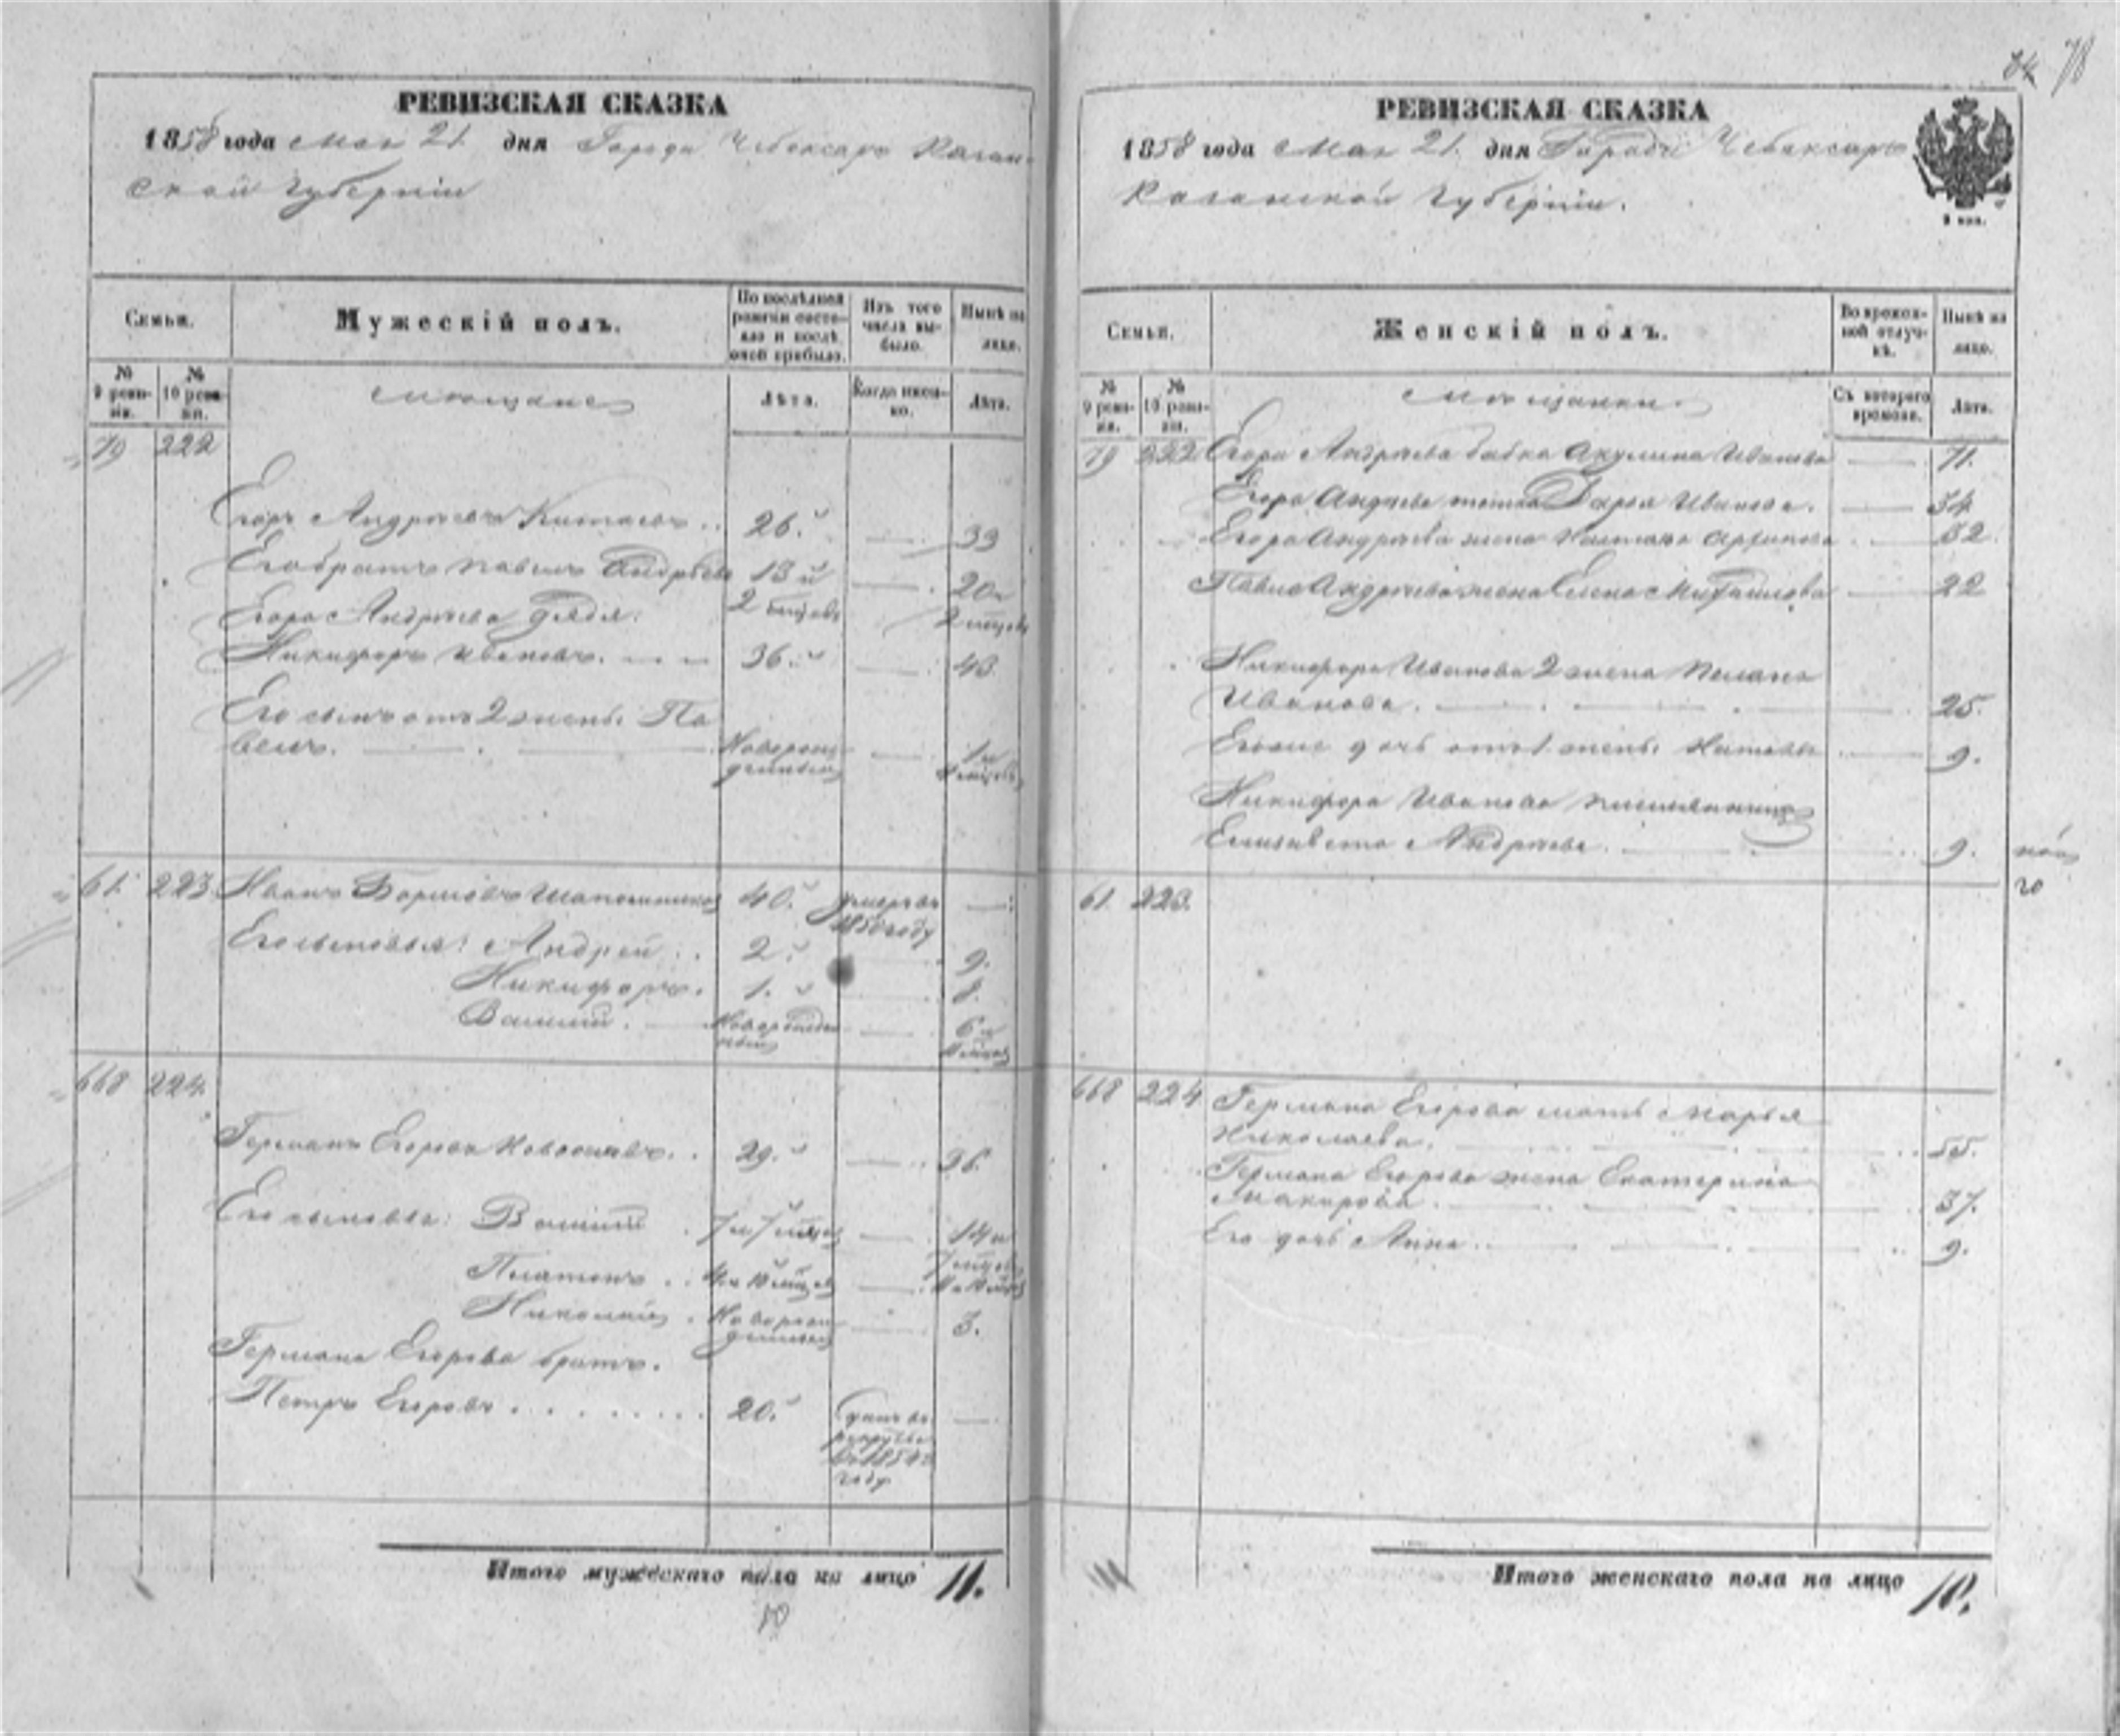 78
РЕВИЗСКАЯ СКАЗКА
1858 года Мая 21. дня Города Чебоксаръ Казан-
ской Губерніи
Семьи.
Мужескій полъ.
По послѣдней ревизіи состояло и послѣ оной прибыло.
Изъ того числа выбыло.
Нынѣ на лицо.
№ 9 ревизіи.
№ 10 ревизіи.
Мѣщане
Лѣта.
Когда именно.
Лѣта.
79 222
Егоръ Андреевъ 26. 39
Его братъ Павелъ Андреевъ 13 и 2 мѣсяцъ 20 и 2 мѣсяц
Егора Андреева дядя:
Никифоръ Ивановъ. 36. 43
Его сынъ отъ 2 жены Па
велъ. Новорожденный 1 и
61. 223 Иванъ Борисовъ Шапошников 40. умеръ въ 1850 году
Его сыновья: Андрей 2. 9.
Никифоръ. 1. 8.
Василій. Новорожденный 6 и
668 224.
Германъ Егоровъ 29. 36.
Его сыновья: Василій 7 и 7 мѣсяц 14 и 7 мѣсяц
Платонъ
Николай Новорожденный 3.
Германа Егорова братъ.
Петръ Егоровъ 20. Сданъ въ рекруты въ 1854 году
Итого мужескаго пола на лицо 11.
РЕВИЗСКАЯ СКАЗКА
1858 года Мая 21. дня Города Чебоксаръ
Казанской Губерніи.
Семьи.
Женскій полъ.
Во временной отлучкѣ.
Нынѣ на лицо.
№ 9 ревизіи.
№ 10 ревизіи.
Мѣщанки.
Съ котораго времени.
Лѣта.
79 222 Егора Андреева бабка Акулина Иванова 71.
Егора Андреева тетка Дарья Иванова. 54
Егора Андреева жена 32
Павла Андреева жена Елена Михайлова 22
Никифора Иванова 2 жена
Иванова. 25.
Его же дочь отъ 1 жены 9.
Никифора Иванова племянница
Елизавета Андреева. 9.
61 223.
668 224 Германа Егорова мать Марья
Николаева. 55.
Германа Егорова жена Екатерина
37.
Его дочь Анна. 9.
Итого женскаго пола на лицо 10.